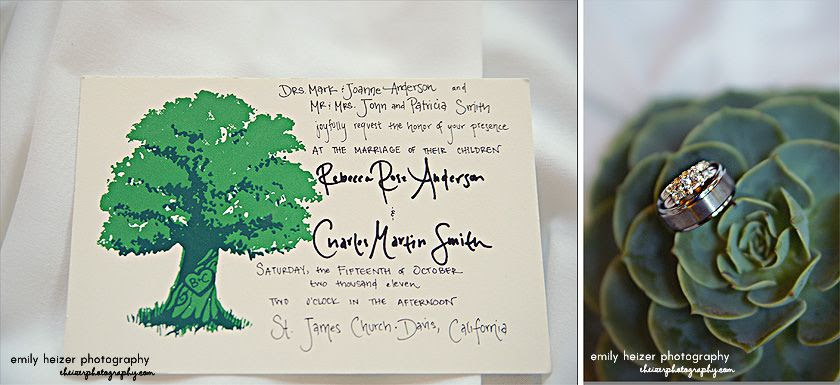 Drs. Mark & Joanne Anderson and
Mr. & Mrs. John and Patricia Smith
joyfully request the honor of your presence
AT THE MARRIAGE OF THEIR CHILDREN
Rebecca Rose Anderson
&
Charles Martin Smith
SATURDAY, the FIFTEENTH OF OCTOBER
two thousand eleven
TWO O'CLOCK IN THE AFTERNOON
St. James Church · Davis, California
emily heizer photography
eheizerphotography.com
emily heizer photography
eheizerphotography.com